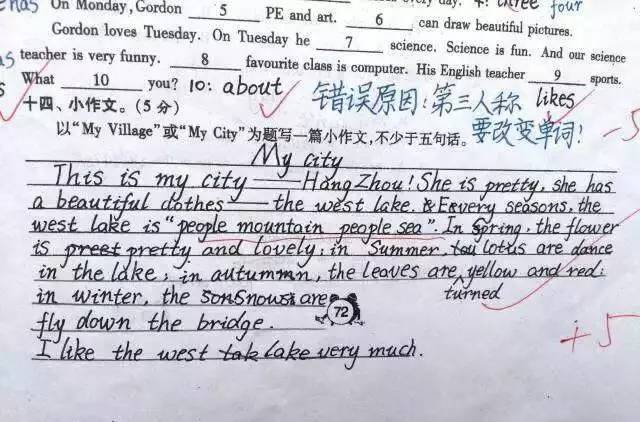 On Monday, Gordon 5 PE and art. 6 can draw beautiful pictures. four
Gordon loves Tuesday. On Tuesday he 7 science. Science is fun. And our science
teacher is very funny. 8 favourite class is computer. His English teacher 9 sports.
What 10 you? 10: about 错误原因:第三人称 likes
十四、小作文。(5分) 要改变单词!
以“My Village”或“My City”为题写一篇小作文,不少于五句话。 -5
My city
This is my city——HangZhou! She is pretty, she has
a beautiful clothes——the west lake. Every seasons, the
west lake is "people mountain people sea". In Spring, the flower
is pretty and lovely; in Summer, lotus are dance
in the lake; in autumn, the leaves are turned yellow and red;
in winter, the snows are
fly down the bridge. 72
I like the west lake very much. +5